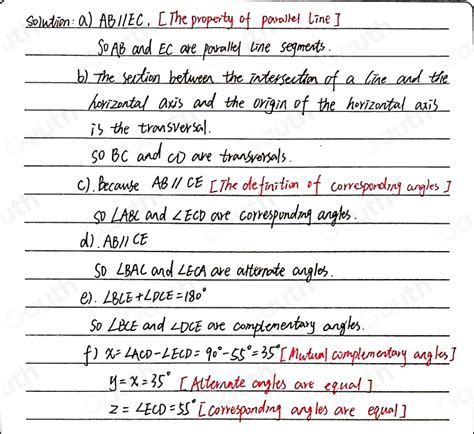 Solution: a) AB//EC, [The property of parallel Line]
So AB and EC are parallel line segments.
b) The section between the intersection of a line and the
horizontal axis and the origin of the horizontal axis
is the transversal.
SO BC and CD are transversals.
c). Because AB // CE [The definition of corresponding angles]
SO ∠ABC and ∠ECD are corresponding angles.
d). AB// CE
So ∠BAC and ∠ECA are alternate angles.
e). ∠BCE+∠DCE=180°
So ∠BCE and ∠DCE are complementary angles.
f) x=∠ACD-∠ECD=90°-55°=35° [Mutual complementary angles]
y=x=35° [Alternate angles are equal]
z=∠ECD=55° [Corresponding angles are equal]